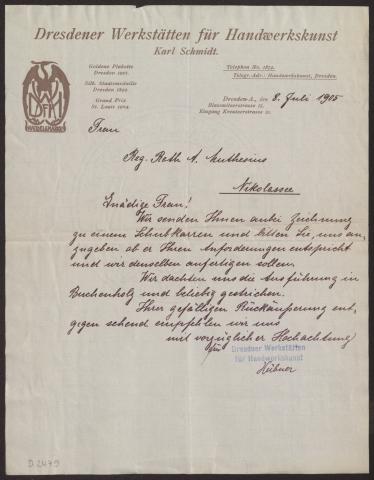 Dresdener Werkstätten für Handwerkskunst
Karl Schmidt.
Goldene Plakette
Dresden 1901.
Silb. Staatsmedaille
Dresden 1899.
Grand Prix
St. Louis 1904.
Telephon No. 1872.
Telegr.-Adr.: Handwerkskunst, Dresden.
Dresden-A., den 8. Juli 1905
Blasewitzerstrasse 17.
Eingang Kreutzerstrasse
DWfHK
HANDELSMARKE
Frau
Reg. Rath A. Muthesius
Nikolassee
Gnädige Frau!
Wir senden Ihnen anbei Zeichnung
zu einem Schubkarren und bitten Sie, uns an-
zugeben ob er Ihren Anforderungen entspricht
und wir denselben anfertigen sollen.
Wir dachten uns die Ausführung in
Buchenholz und beliebig gestrichen.
Ihrer gefälligen Rückäußerung ent-
gegen sehend empfehlen wir uns
mit vorzüglicher Hochachtung
für
Dresdener Werkstätten
für Handwerkskunst
Hübner
D 2479